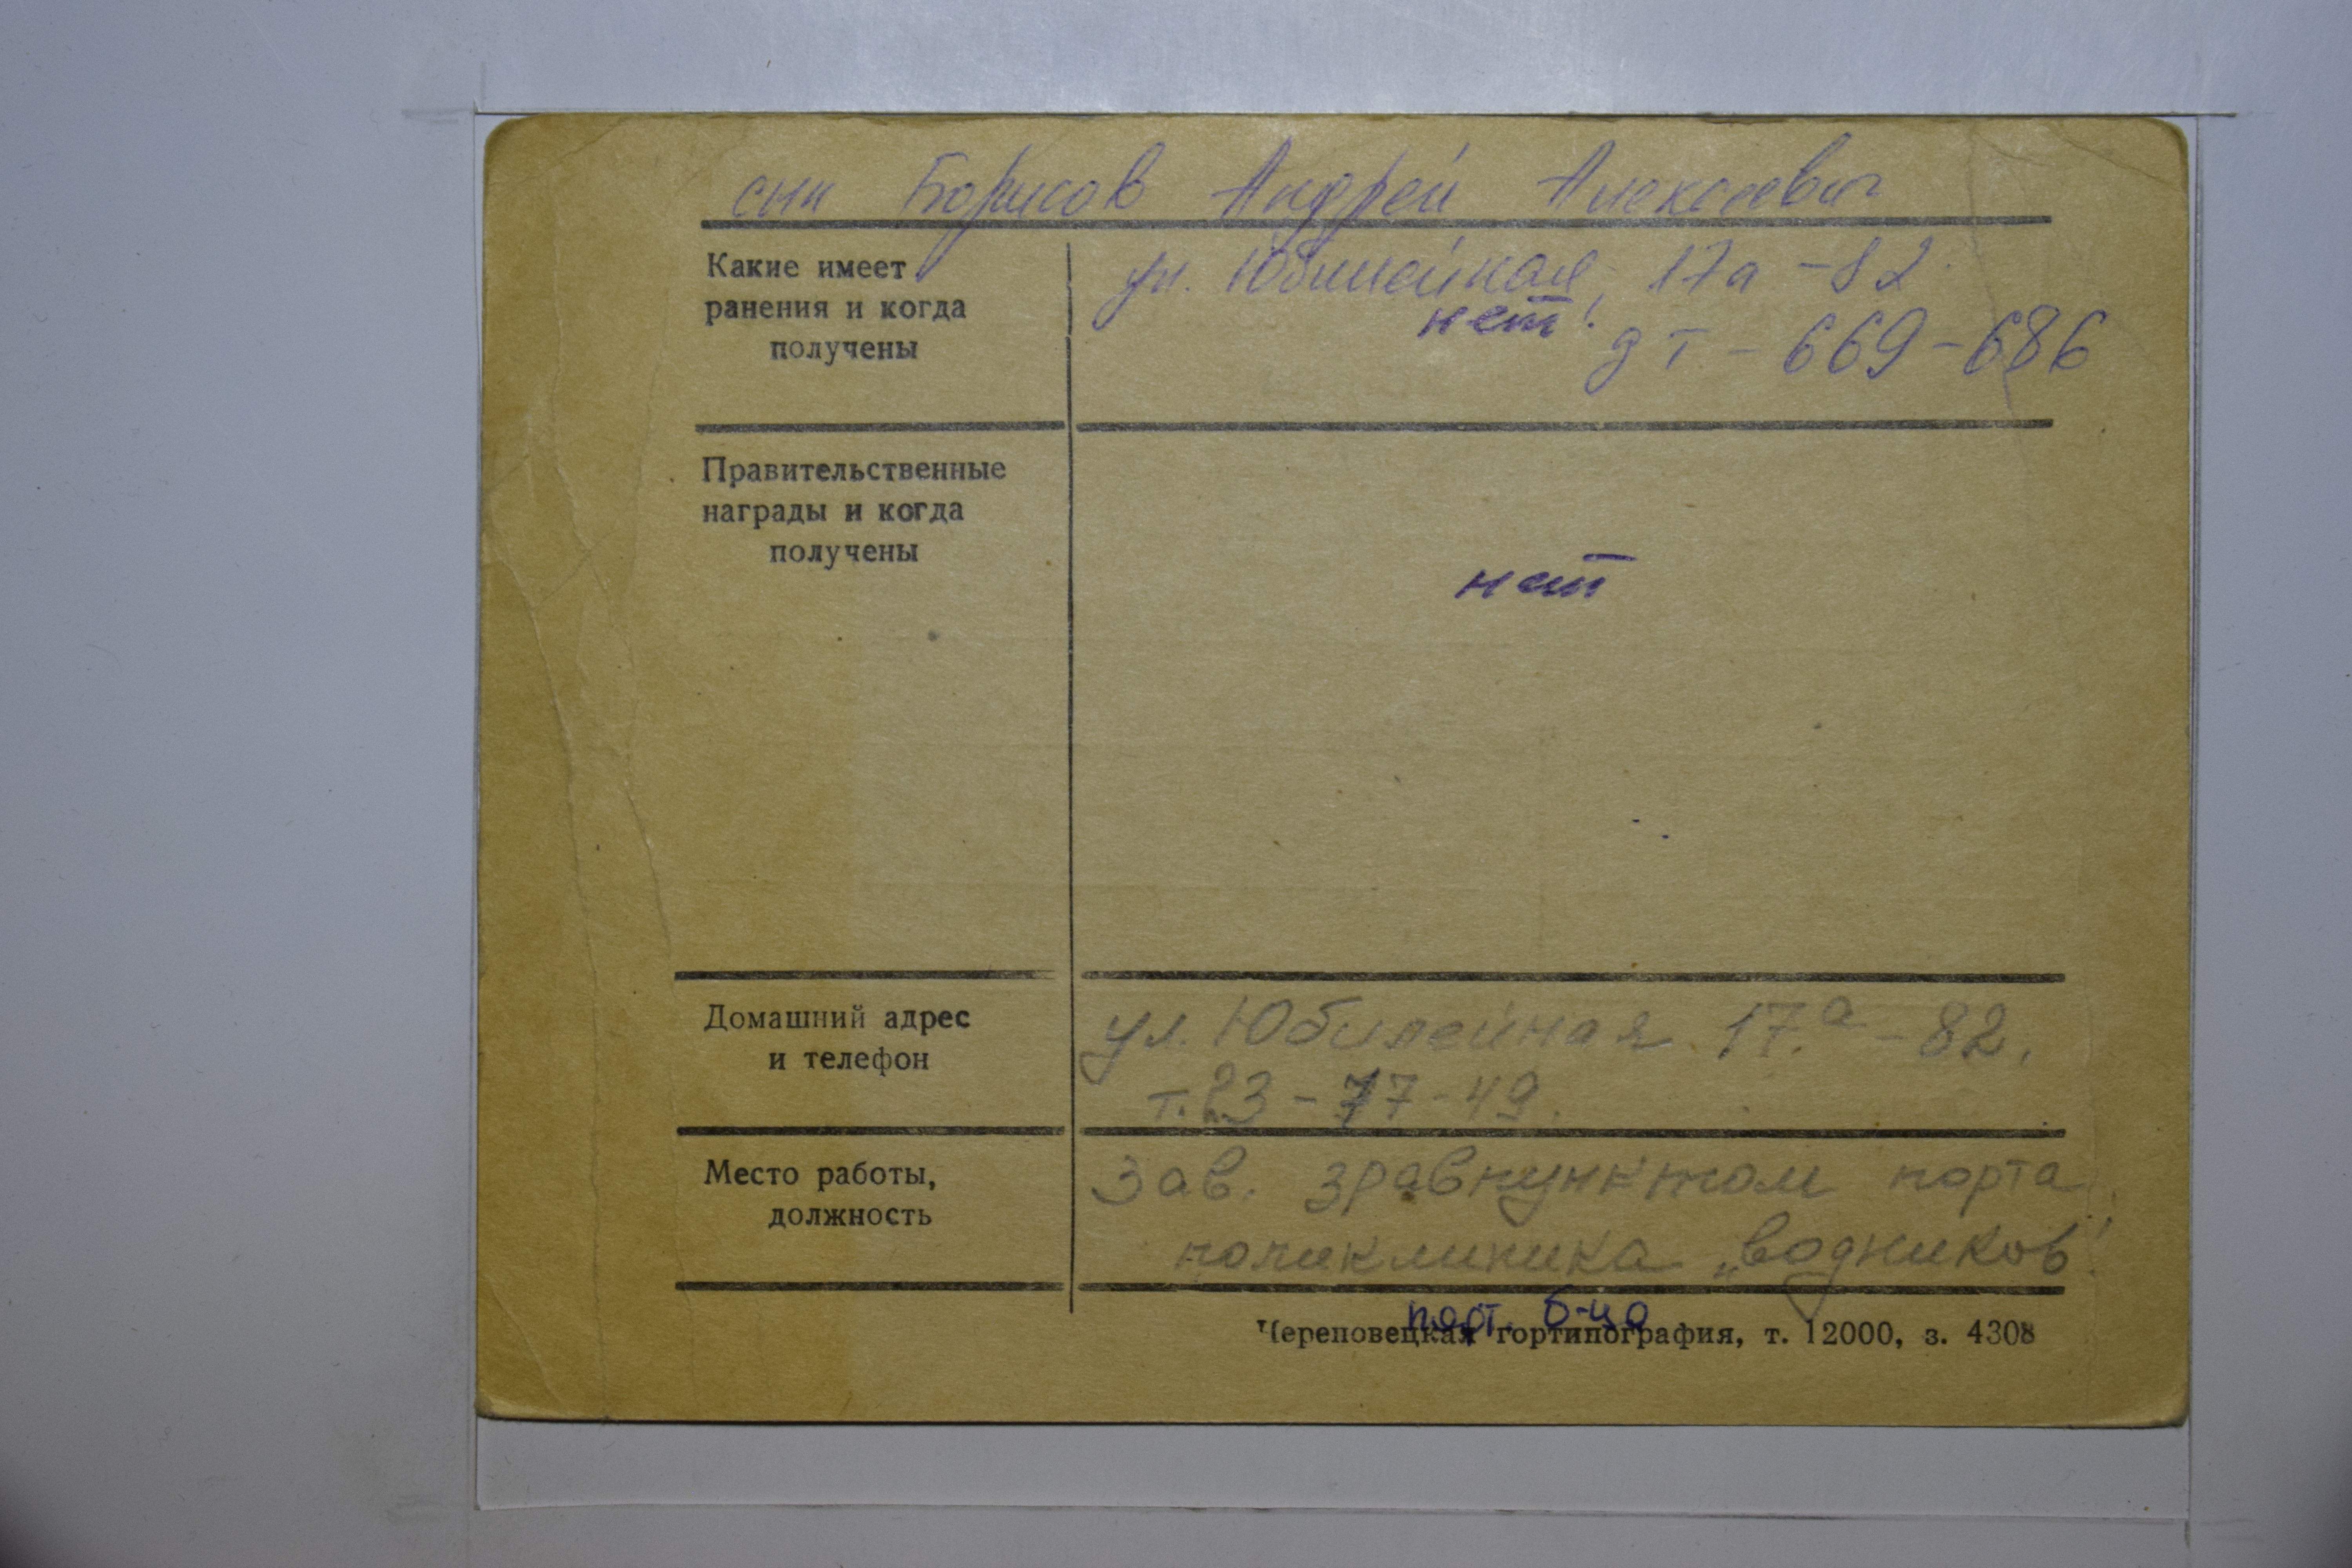 сын Борисов Андрей Алексеевич
Какие имеет
ранения и когда
получены
ул. Юбилейная, 17а - 82
нет!
дт - 669-686
Правительственные
награды и когда
получены
нет
Домашний адрес
и телефон
ул. Юбилейная 17.а - 82.
т. 23-77-49.
Место работы,
должность
Зав. зравпунктом порта
поликлиника „водников"
порт. б-ца
Череповецкая гортипография, т. 12000, з. 4308